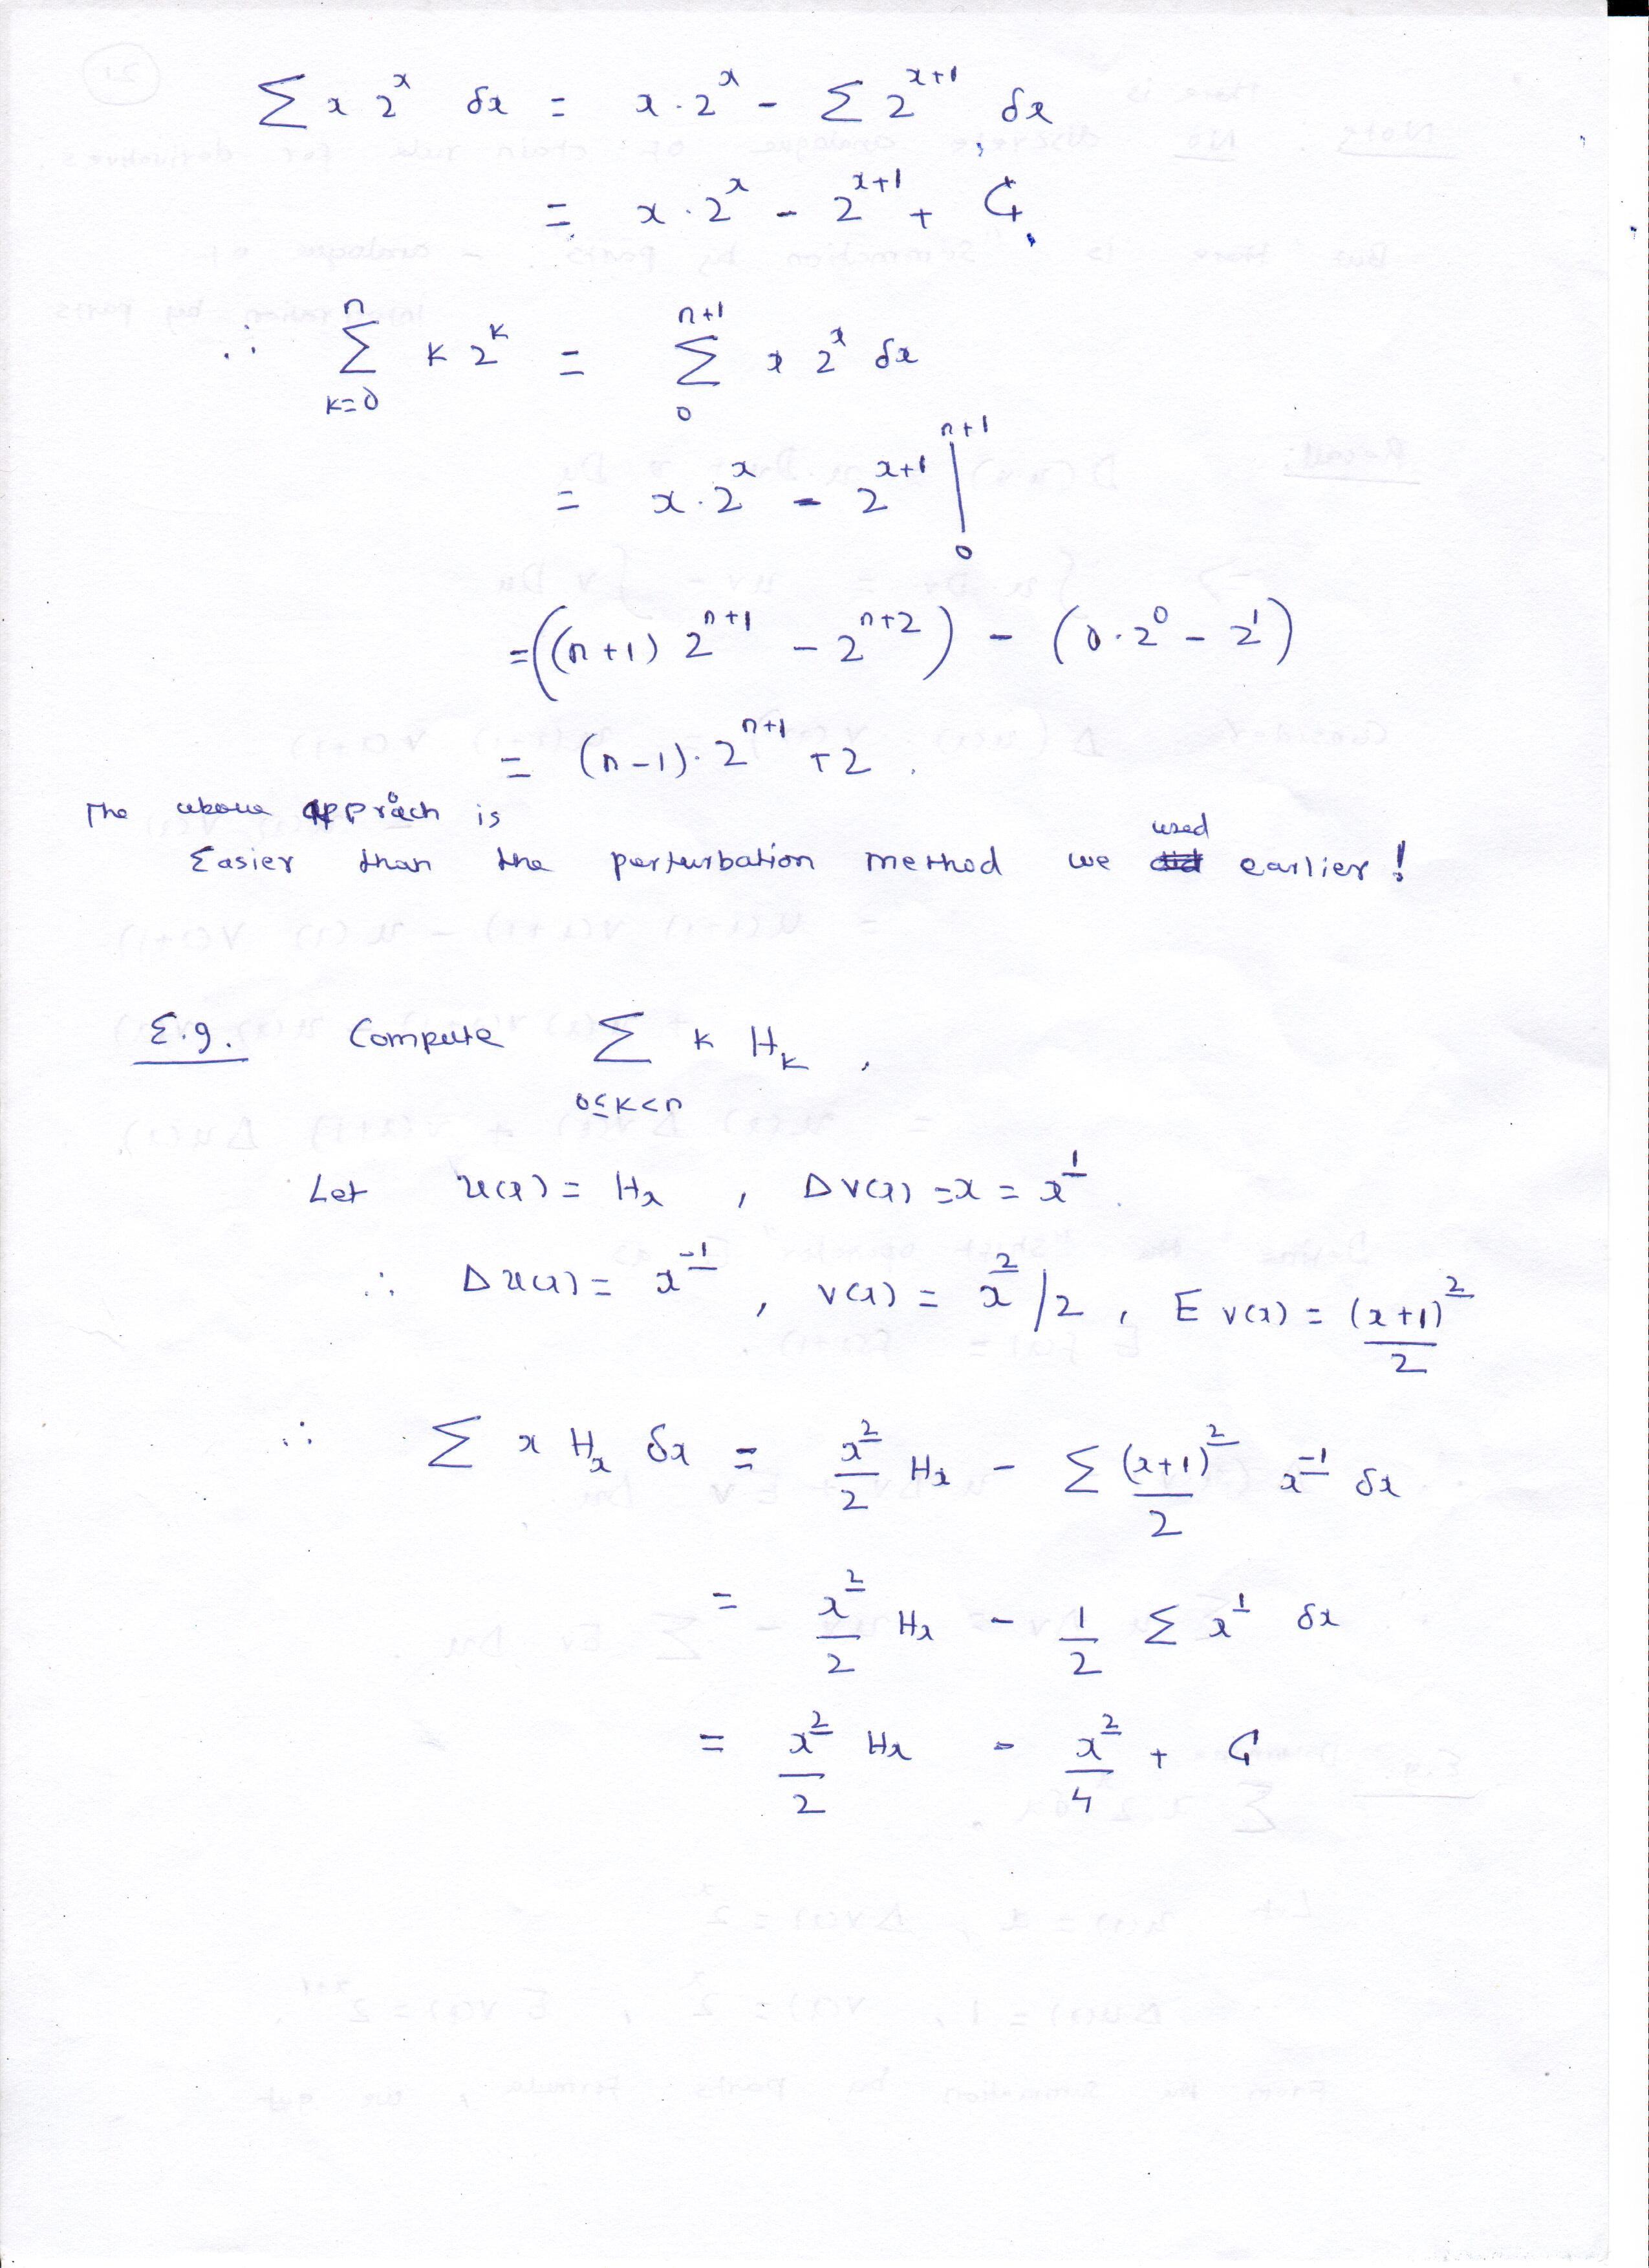 ∑ x 2^x δx = x · 2^x - ∑ 2^{x+1} δx
= x · 2^x - 2^{x+1} + C,
∴ ∑_{k=0}^{n} k 2^k = ∑_{0}^{n+1} x 2^x δx
= x · 2^x - 2^{x+1} |_{0}^{n+1}
= ((n+1) 2^{n+1} - 2^{n+2}) - (0 · 2^0 - 2^1)
= (n-1) · 2^{n+1} + 2 .
The above approach is
Easier than the perturbation method we used earlier !
E.g. Compute ∑_{0≤k<n} k H_k ,
Let u(x) = H_x , Δv(x) = x = x^{\underline{1}} .
∴ Δu(x) = x^{\underline{-1}} , v(x) = x^{\underline{2}} / 2 , E v(x) = (x+1)^{\underline{2}} / 2
∴ ∑ x H_x δx = x^{\underline{2}} / 2 H_x - ∑ (x+1)^{\underline{2}} / 2 x^{\underline{-1}} δx
= x^{\underline{2}} / 2 H_x - 1/2 ∑ x^{\underline{1}} δx
= x^{\underline{2}} / 2 H_x - x^{\underline{2}} / 4 + C